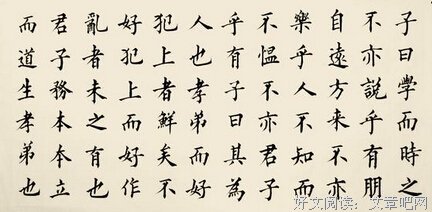 子曰學而時之
不亦說乎有朋
自遠方來不亦
樂乎人不知而
不慍不亦君子
乎有子曰其為
人也孝弟而好
犯上者鮮矣不
好犯上而好作
亂者未之有也
君子務本本立
而道生孝弟也
好文阅读：文章吧网